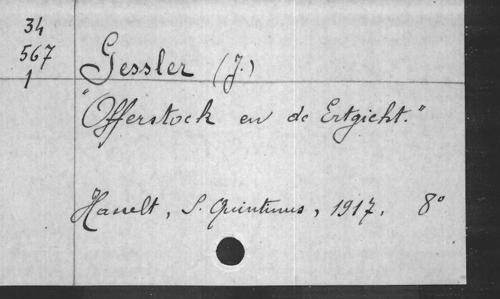 34
567
1
Gessler (J.)
"Offerstock en de Ertgicht."
Hasselt, S. Quintinus, 1917. 8°